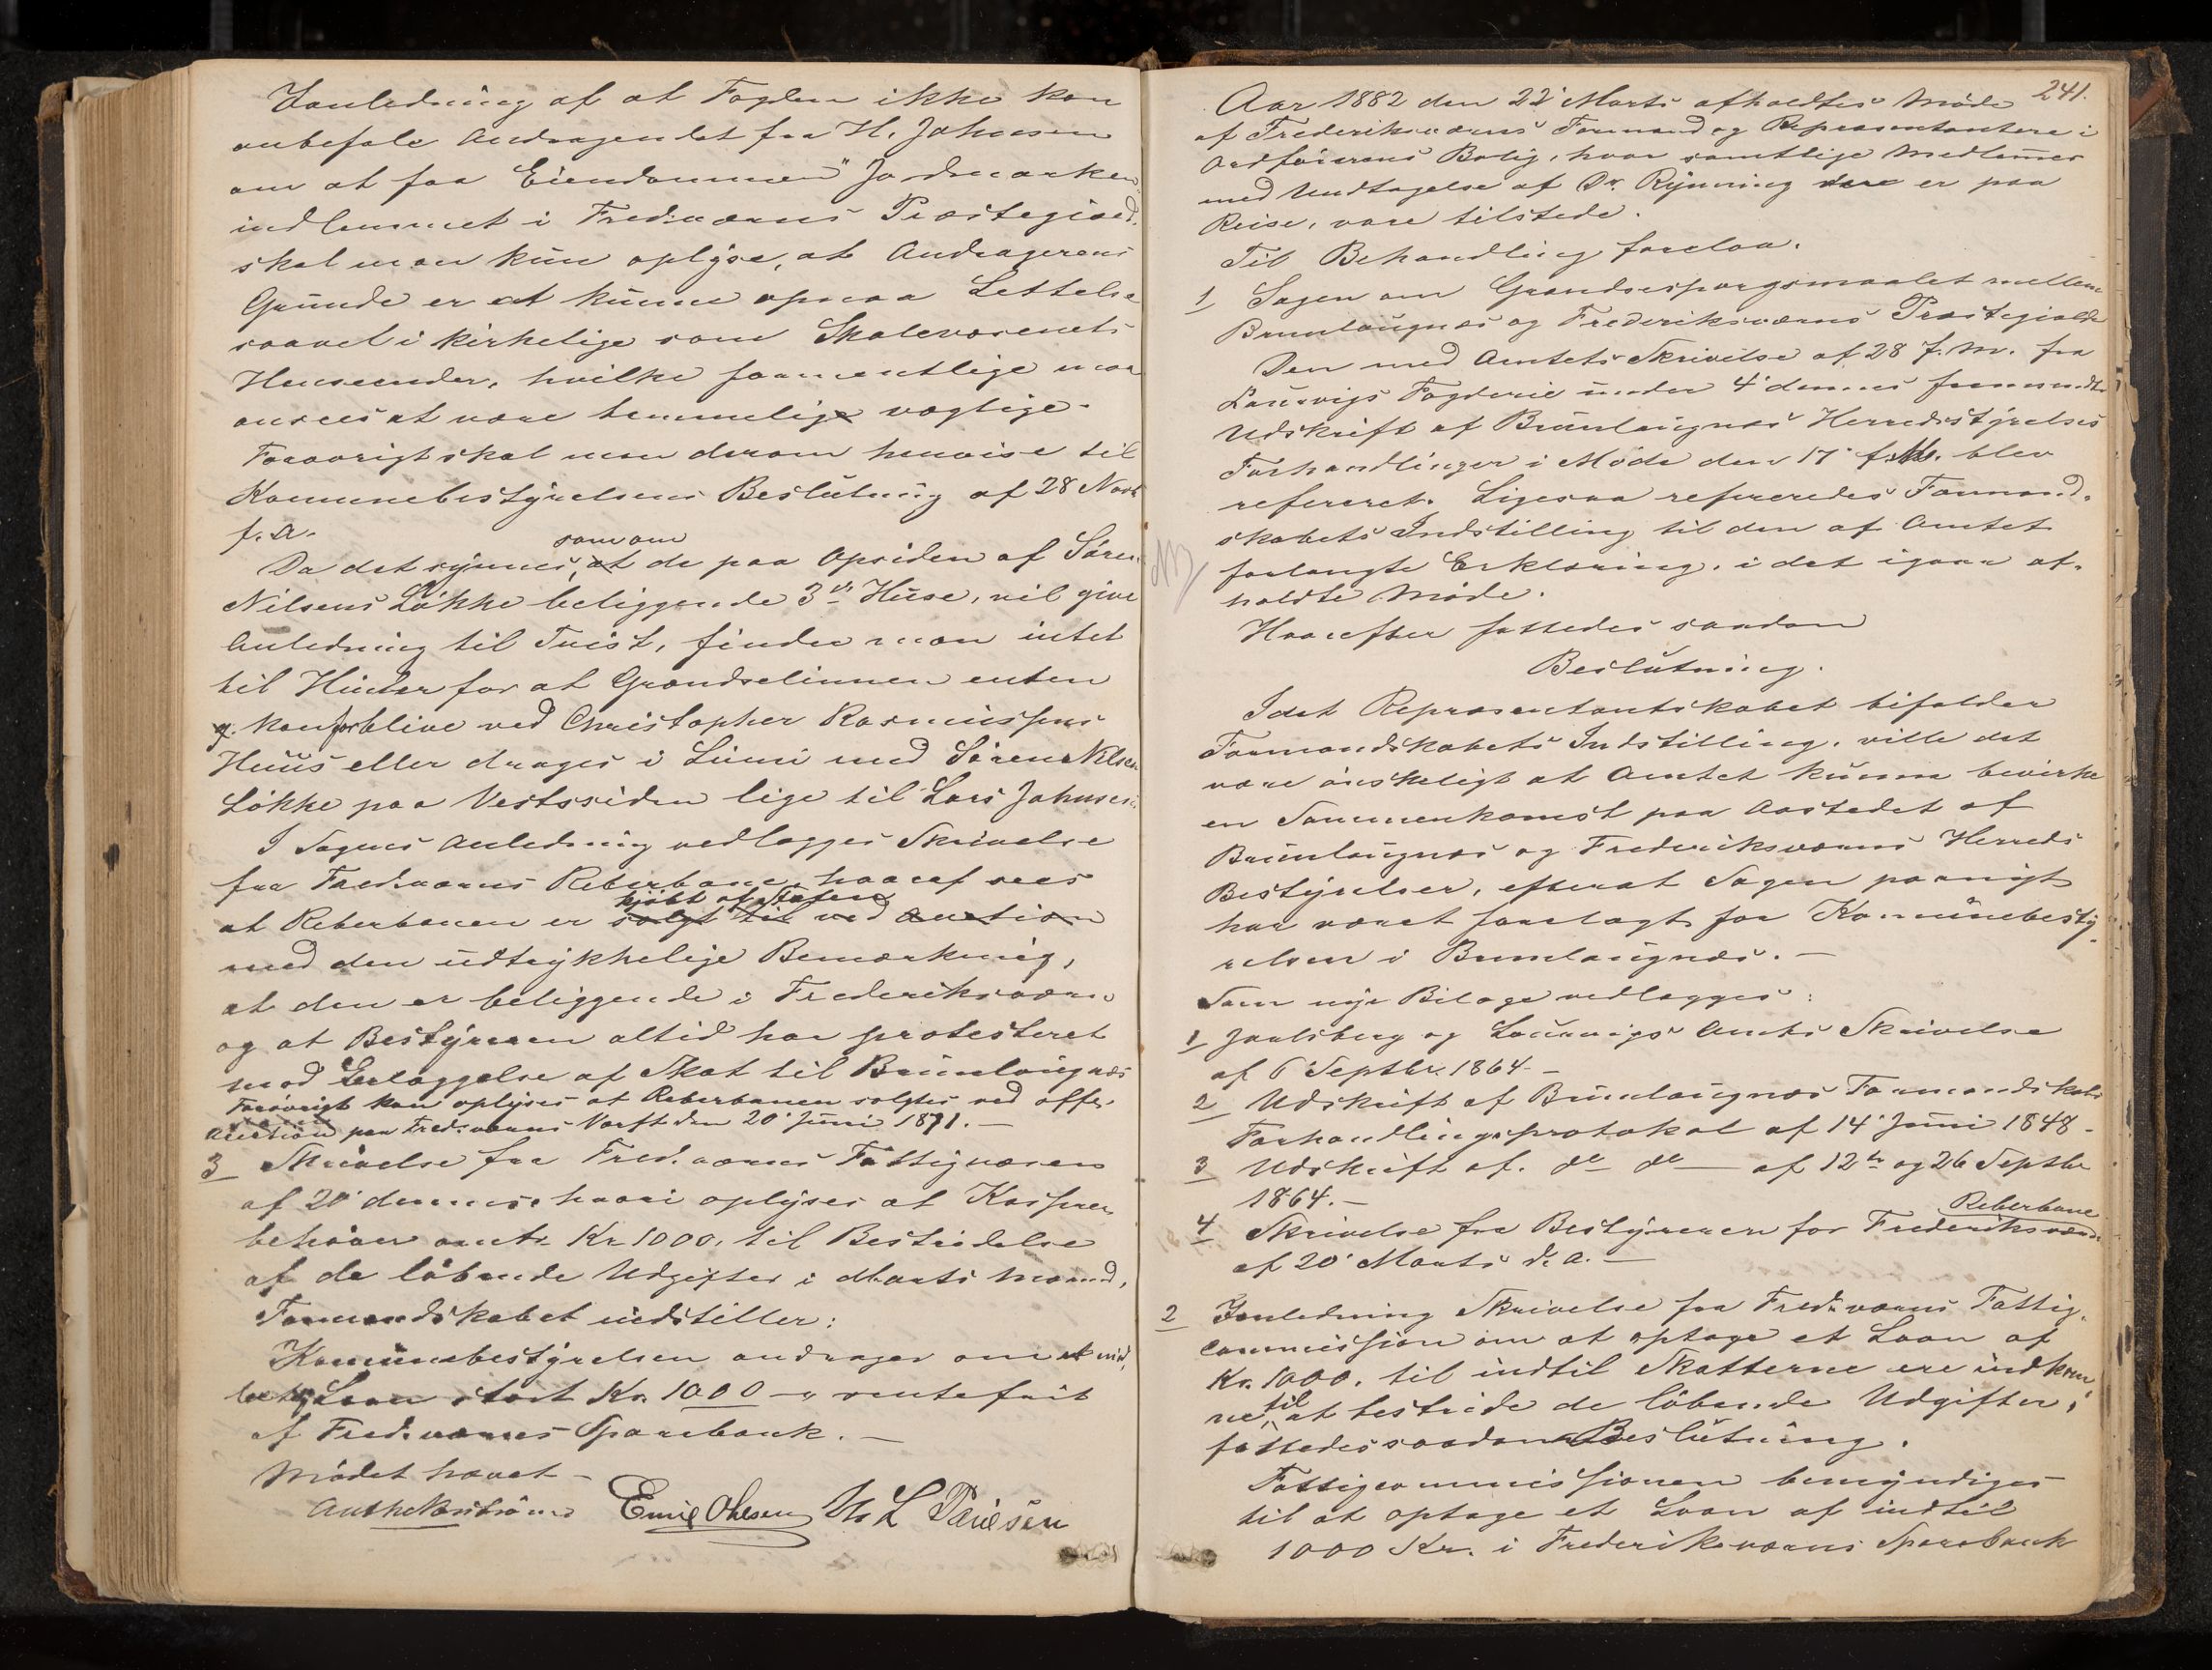 Ianledning af at Fogden ikke kan
anbefale Andragendet fra H. Johnsen
om at faa Eiendommen "Jordmarken"
indlemmet i Fred:værns Præstegiæld,
skal man kun oplyse, at Andragerens
Grunde er at kunne opnaa Lettelse
saavel i kirkelige som Skolevæsenets
Henseender, hvilke formentlige maa
ansees at være temmelig vægtige.
Forøvrigt skal man derom henvise til
Kommunebestyrelsens Beslutning af 28 Novb
f. A.
som om
Da det synes, at de paa Opsiden af Søren
Nilsens Løkke beliggende 3de Huse, vil give
Anledning til Tvist, finder man intet
til Hinder for at Grændselinnen enten
kan forblive ved Christopher Rasmussens
Huus eller drages i Linni med Søren Nilsen
Løkke paa Vestsiden lige til Lars Johnsen
I Sagens Anledning vedlægges Skrivelse
fra Fredværns Reberbane, hvoraf sees
kjøbt af Staten
at Reberbanen er solgt til ved Auction
med den udtrykkelige Bemærkning,
at den er beliggende i Frederiksværn
og at Bestyreren altid har protesteret
mod Erlæggelse af Skat til Brunlaugnæs
Forøvrigt kan oplyses at Reberbanen solgtes ved offe.
Auction paa Fred:værns Værft den 20' Juni 1871.—
3 Skrivelse fra Fred.værns Fattigvæsen
af 20' dennes hvori oplyses at Kassen
behøver omtr. Kr 1000. til Bestridelse
af de løbende Udgifter i Marts Maaned,
Formandskabet indstiller:
Kommunebestyrelsen andrager om et mid,
Laan stort Kr. 1000 — rentefrit
af Fred.værnes Sparebank. —
Mødet hævet —
Emil Ohlsen
241.
Aar 1882 den 22' Marts afholdtes Møde
af Frederiksværns Formænd og Repræsentantere i
Ordførerens Bolig, hvor samtlige Medlemmer
med Undtagelse af Dr. Rynning der er paa
Reise, vare tilstede.
Til Behandling forelaa.
1 Sagen om Grændsespørgsmaalet mellem
Brunlaugnæs og Frederiksværns Præstegiælde
Den med Amtets Skrivelse af 28 f. M. fra
Laurvigs Fogderie under 4' dennes fremsendte
Udskrift af Brunlaugnæs Herredsstyrelses
Forhandlinger i Møde den 17' f. M. blev
refereret. Ligesaa refereredes Formand-
skabets Indstilling til den af Amtet
forlangte Erklæring, i det igaar af-
holdte Møde.
Hvorefter fattedes saadan
Beslutning.
Idet Repræsentantskabet bifalder
Formandskabets Indstilling, ville det
være ønskeligt at Amtet kunne bevirke
en Sammenkomst paa Aastedet af
Brunlaugnæs og Frederiksværns Herreds
Bestyrelser, efterat Sagen paanyt
har været forelagt for Kommunebesty-
relsen i Brunlaugnæs. —
Som nye Bilage vedlægges:
1 Jarlsberg og Laurvigs Amts Skrivelse
af 6' Septbr. 1864. —
2 Udskrift af Brunlaugnæs Formandskabs
Forhandlingsprotokol af 14' Juni 1848 -
3 Udskrift af. do do — af 12te og 26 Septbr
1864. —
Reberbane
4 Skrivelse fra Bestyreren for Frederiksværns
af 20' Marts d. A. —
2 Ianledning Skrivelse fra Fred:værns Fattig-
commission om at optage et Laan af
Kr. 1000. til indtil Skatterne ere indkom-
ne, til at bestride de løbende Udgifter,
fattedes saadan Beslutning.
Fattigcommissionen bemyndiges
til at optage et Laan af indtil
1000 Kr. i Frederiksværns Sparebank